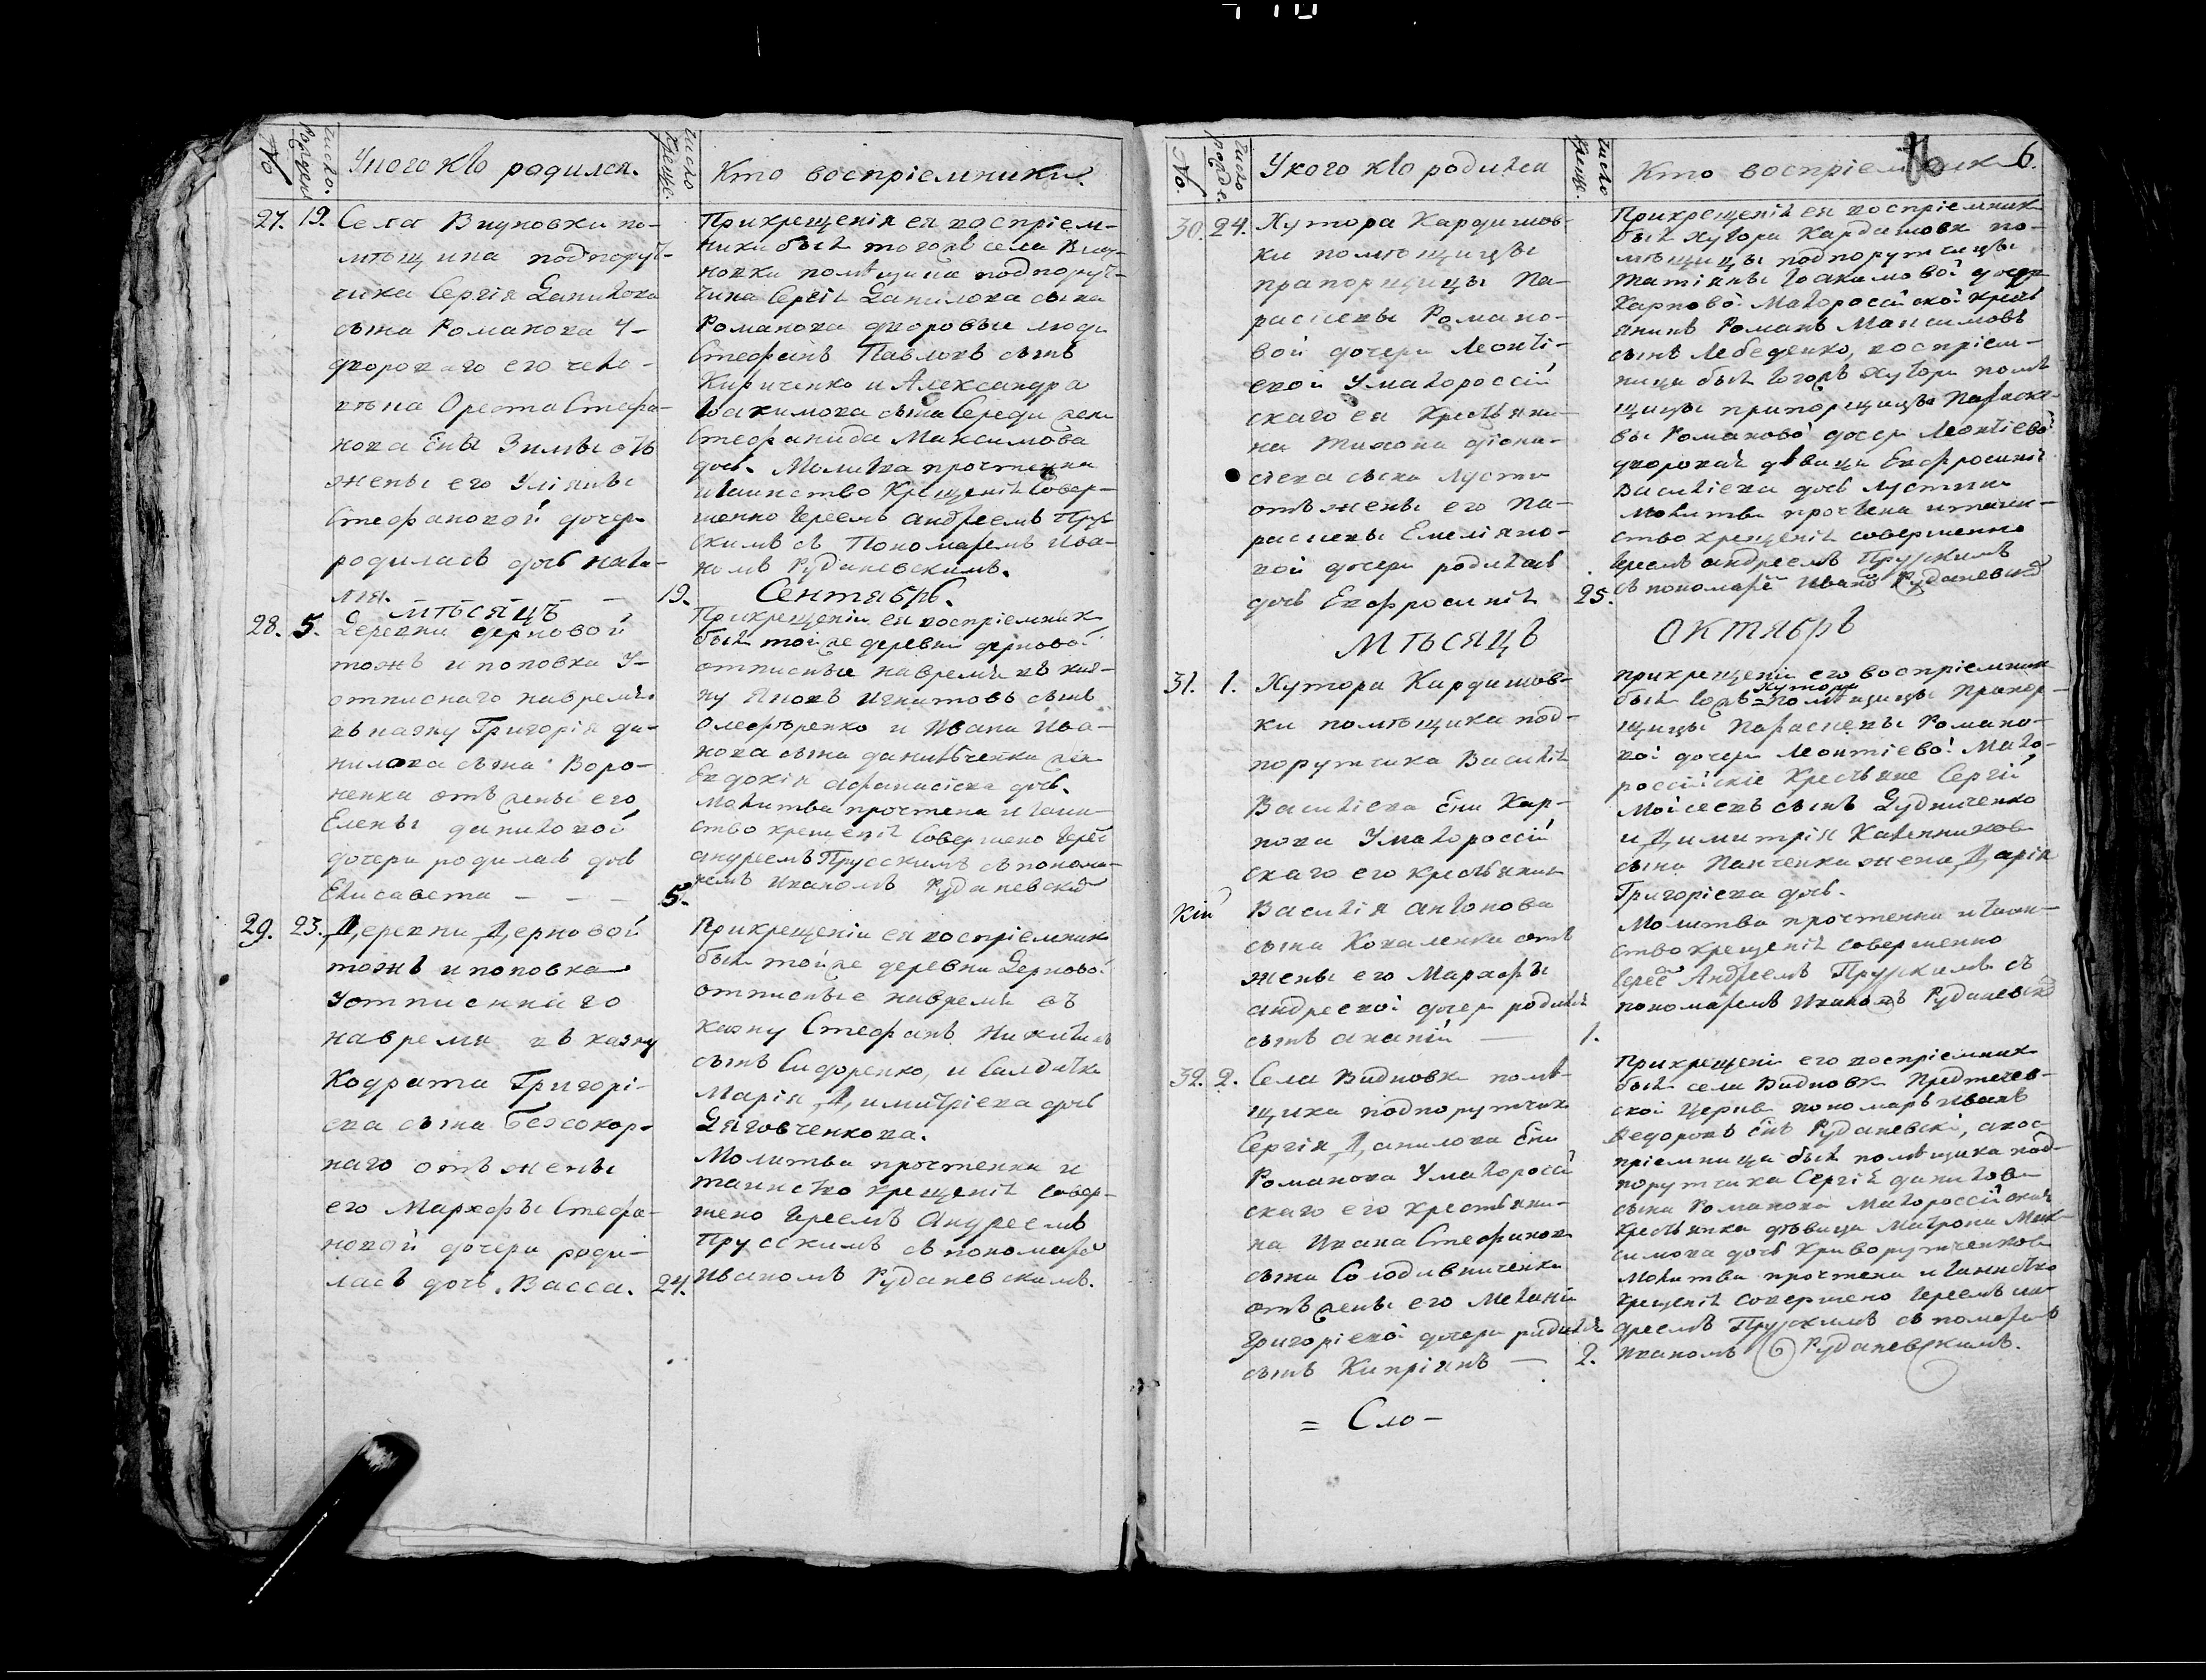 №
число рожден
У кого кто родился.
число креще.
Кто воспріемники.
27. 19.
Села Видновки по-
мѣщика подпорут-
чика Сергія Данилова
сына Романова у
двороваго его чело-
вѣка Ореста Стефа-
нова сна Зимы отъ
жены его Уліяны
Стефановой дочери
родилась дочь Ната-
лія. — — — 19.
Прикрещенія ея воспріем-
ники были тогожъ села Вид-
новки помѣщика подпорут-
чика Сергія Данилова сына
Романова дворовые люди
Стефанъ Павловъ сынъ
Кириченко и Александра
Іоакимова сына Середи жена
Стефанида Максимова
дочь. Молитва прочтенна
и таинство Крещенія Совер-
шенно Іереемъ Андреемъ Пру-
скимъ съ Пономаремъ Ива-
номъ Рудановскимъ.
Мѣсяцъ Сентябрь.
28. 5.
Деревни дерновой
тожъ и поповка у
отписнаго навремя
въ казну Григорія да-
нилова сына Воро-
ненка отъ жены его
Елены даниловой
дочери родилась дочь
Елисавета — — — 5.
Прикрещеніи ея воспріемник
были тойже деревни дерновой
отписные навремя въ каз-
ну Яковъ Игнатовъ сынъ
Олефѣренко и Ивана Ива-
нова сына данильченка жена
Евдокія Афанасіева дочь.
Молитва прочтена и таин-
ство крещенія Совершено Іерее
андреемъ Прусскимъ съ понома-
ремъ Иваномъ Рудановски
29. 23.
Деревни Дерновой
тожъ и поповка
У отписннаго
навремя въ казну
Кодрата Григорі-
ева сына Безсокор-
наго отъ жены
его Марфы Стефа-
новой дочери роди-
лась дочь Васса. 24.
Прикрещеніи ея воспріемник
были тойже деревни Дерновой
отписные навремя въ
казну Стефанъ Никитинъ
сынъ Сидоренко, и Салдатка
Марія Димитріева дочь
Дяговченкова.
Молитва прочтенна и
таинство крещенія Совер-
шено Іереемъ Андреемъ
Прусскимъ съ пономаре
Иваномъ Рудановскимъ.
№.
число рожде.
У кого кто родился
число креще.
Кто воспріемник
6.
30. 24.
Хутора Кардашов-
ки помѣщицы
прапорщицы Па-
раскевы Романо-
вой дочери Леонті-
евой У малороссій
скаго ея Крестьяни-
на Тихона Діони-
сіева сына Лусти
отъ жены его Па-
раскевы Емеліяно-
вой дочери родилась
дочь Евфросинія 25.
Прикрещенія ея воспріемник
былъ хутора Кардашовк по-
мѣщицы подпорутчицы
татіаны Іоакимовой дочери
Карповой Малороссійской крест
янинъ Романъ Максимовъ
сынъ Лебеденко, воспріем-
ница была тогожъ Хутора помѣ
щицы прапорщицы Параске-
вы Романовой дочери Леонтіевой
дворовая дѣвица Евфросинія
Василіева дочь Лустина
Молитва прочтена и таин-
ство крещенія совершенно
Іереемъ андреемъ Прускимъ
съ пономаре Ивано Рудановски
Мѣсяцъ Октябрь
31. 1.
Хутора Кардашов-
ки помѣщика под-
порутчика Василія
Василіева сна Кар-
пова У малороссій
скаго его крестьянин
Василія антонова
сына Коваленка отъ
жены его Марфы
андреевой дочери родился
сынъ ананій — 1.
прикрещеніи его воспріемник
были тогожъ = хутора помѣщицы Прапор-
щицы Параскевы Романо-
вой дочери Леонтіевой Мало-
россійскіе Крестьяне Сергій
Моісеевъ сынъ Дудниченко
и Димитрія Калинников
сына Панченка жена Дарія
Григоріева дочь.
Молитва прочтенна и таин-
ство крещенія совершенно
Іерее Андреемъ Прускимъ съ
пономаремъ Иваномъ Рудановски
32. 2.
Села Видновки помѣ-
щика подпорутчик
Сергія Данилова сна
Романова У малоросій
скаго его крестьяни-
на Ивана Стефанов
сына Солодивниченка
отъ жены его Меланіи
Григоріевой дочери родился
сынъ Кипріянъ — 2.
Прикрещеніи его воспріемник
былъ села Видновк Предтечев-
ской Церкви пономарь Иванъ
Федоровъ снъ Рудановскі, а вос-
пріемница была помѣщика под-
порутчика Сергія данилов
сына Романова Малороссійская
крестьянка дѣвица Матрона Мак-
симова дочь Криворутченков
Молитва прочтена и таинство
крещенія совершено Іереемъ ан-
дреемъ Прускимъ съ помаремъ
Иваномъ Рудановскимъ.
= Сло-